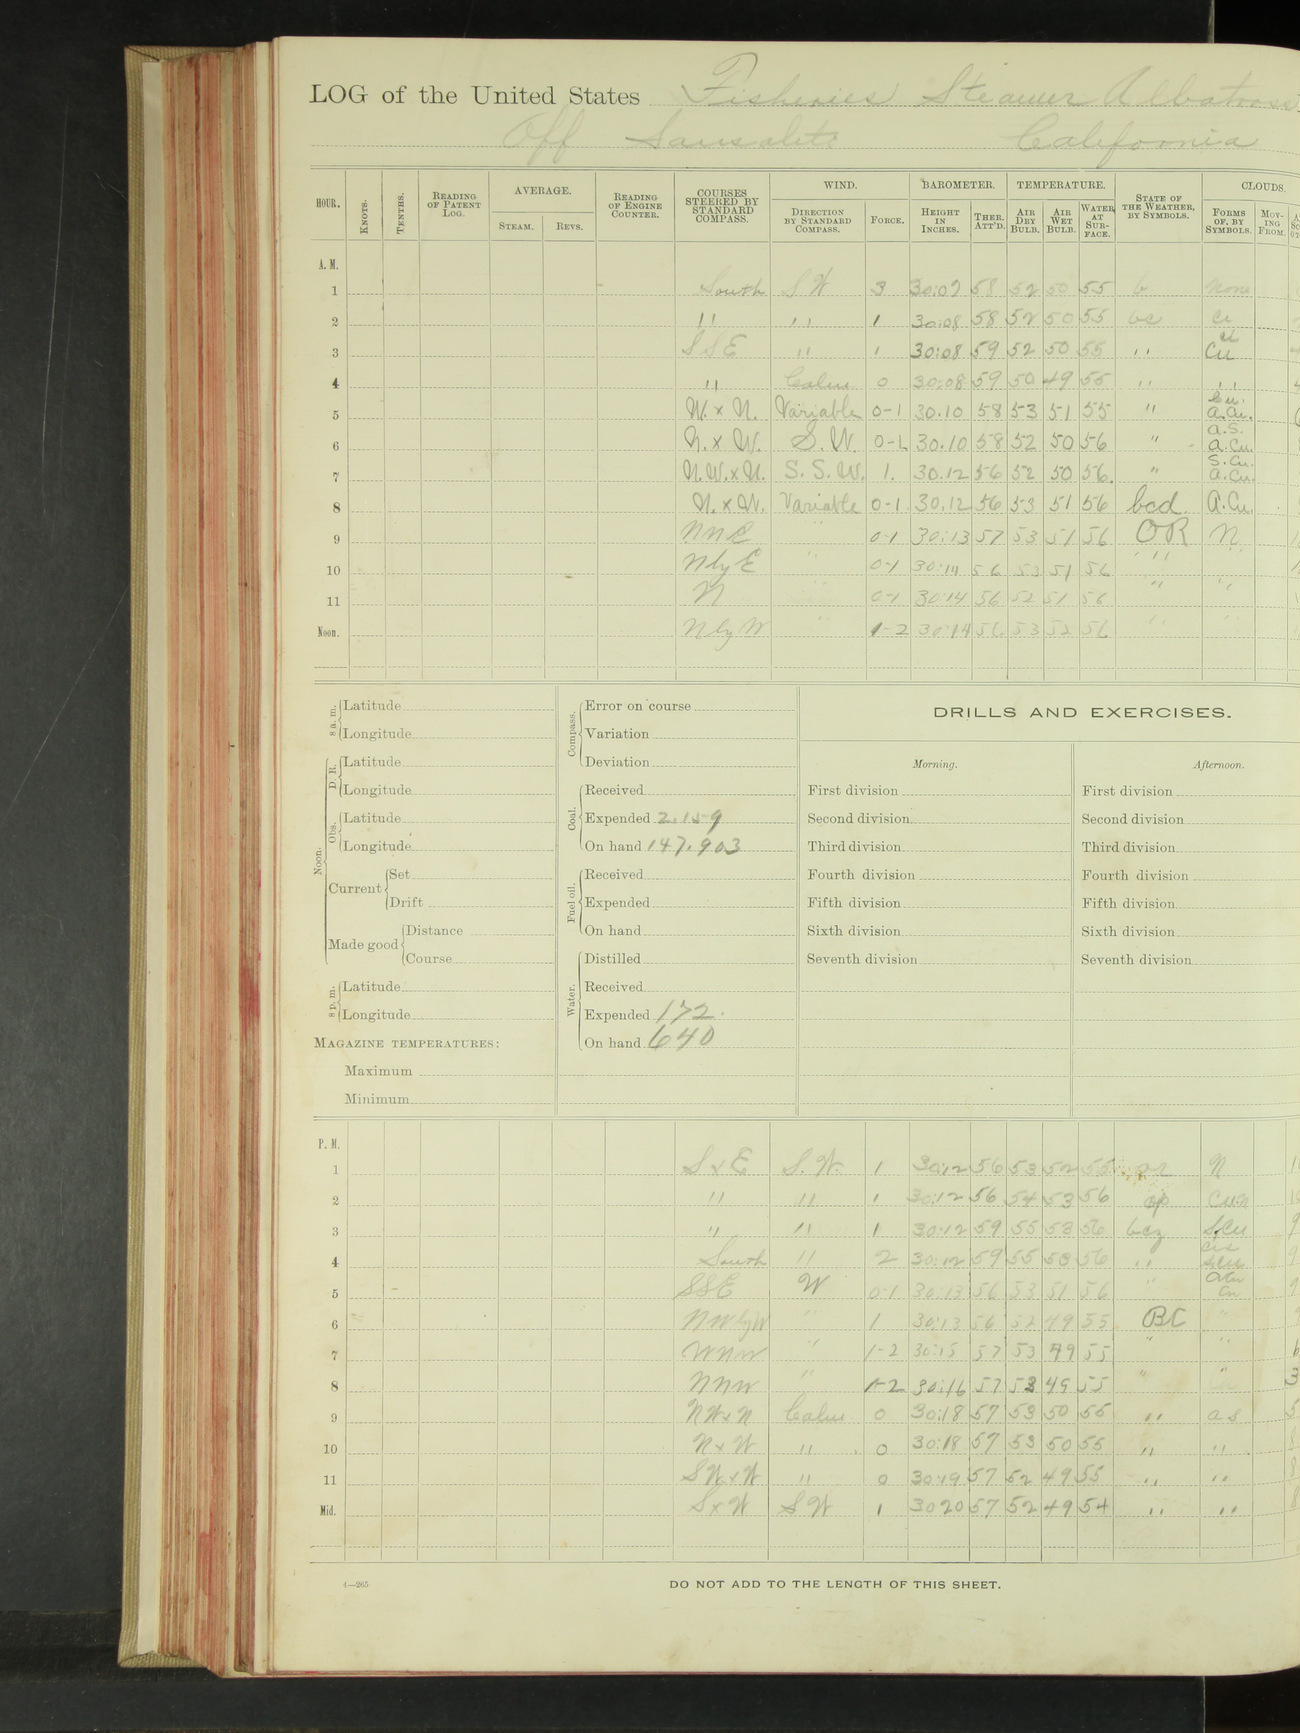 LOG of the United States Fisheries Steamer Albatross
Off Sausalito California
HOUR. KNOTS. TENTHS. READING OF PATENT LOG. AVERAGE. STEAM. REVS. READING OF ENGINE COUNTER. COURSES STEERED BY STANDARD COMPASS. WIND. DIRECTION BY STANDARD COMPASS. FORCE. BAROMETER. HEIGHT IN INCHES. THER. ATT'D. TEMPERATURE. AIR DRY BULB. AIR WET BULB. WATER AT SURFACE. STATE OF THE WEATHER, BY SYMBOLS. CLOUDS. FORMS OF, BY SYMBOLS. MOVING FROM.
A. M.
1 South S W 3 30:07 58 52 50 55 b None
2 " " 1 30:08 58 52 50 55 bc Ci
3 S S E " 1 30:08 59 52 50 55 " Cu
4 " Calm 0 30:08 59 50 49 55 " "
5 W. x N. Variable 0-1 30.10 58 53 51 55 " Cu. A.Cu.
6 N. x W. S. W. 0-1 30.10 58 52 50 56 " A.S. A.Cu.
7 N.W. x N. S. S. W. 1. 30.12 56 52 50 56. " S.Cu. A.Cu.
8 N. x W. Variable 0-1 30.12 56 53 51 56 bcd. A.Cu.
9 NNE " 0-1 30:13 57 53 51 56 OR N
10 N by E " 0-1 30:14 56 53 51 56 " "
11 N " 0-1 30:14 56 52 51 56 " "
Noon. N by W " 1-2 30:14 56 53 52 56 " "
8 a. m. Latitude
Longitude
Noon. D. R. Latitude
Longitude
Obs. Latitude
Longitude
Current Set
Drift
Made good Distance
Course
8 p. m. Latitude
Longitude
MAGAZINE TEMPERATURES:
Maximum
Minimum
Compass. Error on course
Variation
Deviation
Coal. Received
Expended 2.159
On hand 147.903
Fuel oil. Received
Expended
On hand
Water. Distilled
Received
Expended 172.
On hand 640
DRILLS AND EXERCISES.
Morning. Afternoon.
First division First division
Second division Second division
Third division Third division
Fourth division Fourth division
Fifth division Fifth division
Sixth division Sixth division
Seventh division Seventh division
P. M.
1 S x E S. W. 1 30:12 56 53 52 55 or N
2 " " 1 30:12 56 54 53 56 op Cu-n
3 " " 1 30:12 59 55 53 56 bcz S.Cu
4 South " 2 30:12 59 55 53 56 "
5 SSE W 0-1 30:13 56 53 51 56 "
6 NW by W " 1 30:13 56 52 49 55 BC "
7 WNW " 1-2 30:15 57 53 49 55 " "
8 NNW " 1-2 30:16 57 53 49 55 " "
9 NW x N Calm 0 30:18 57 53 50 55 " as
10 N x W " 0 30:18 57 53 50 55 " "
11 SW x W " 0 30:19 57 52 49 55 " "
Mid. S x W S W 1 30 20 57 52 49 54 " "
4—265
DO NOT ADD TO THE LENGTH OF THIS SHEET.